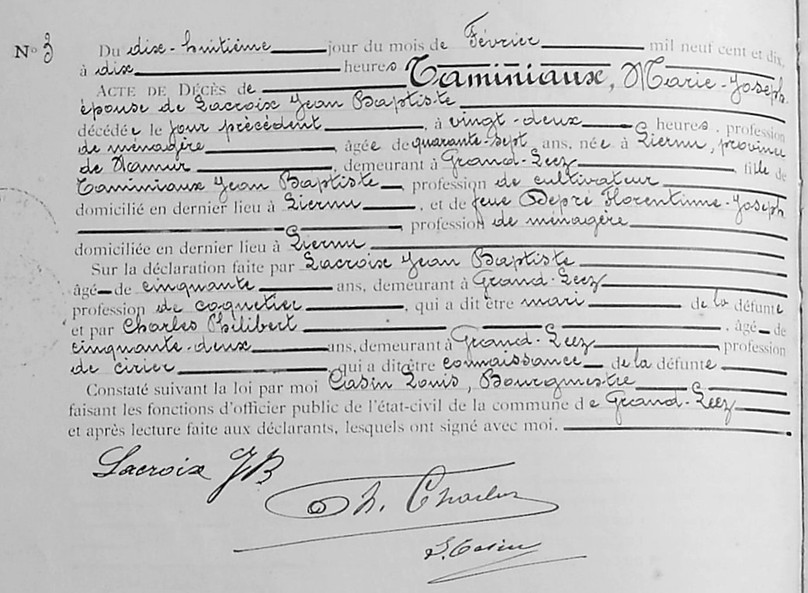 N° 3
Du dix-huitième jour du mois de Février mil neuf cent et dix,
à dix heures
ACTE DE DÉCÈS de Taminiaux, Marie-Joseph
épouse de Lacroix Jean Baptiste
décédée le jour précédent, à vingt-deux heures, profession
de ménagère, âgée de quarante-sept ans, née à Liernu, province
de Namur, demeurant à Grand-Leez, fille de
Taminiaux Jean Baptiste, profession de cultivateur
domicilié en dernier lieu à Liernu, et de feue Depré Florentinne-Joseph
, profession de ménagère
domiciliée en dernier lieu à Liernu
Sur la déclaration faite par Lacroix Jean Baptiste
âgé de cinquante ans, demeurant à Grand-Leez
profession de coquetier, qui a dit être mari de la défunte
et par Charles Philibert, âgé de
cinquante-deux ans, demeurant à Grand-Leez profession
de cirier, qui a dit être connaissance de la défunte
Constaté suivant la loi par moi Casin Louis, Bourgmestre
faisant les fonctions d'officier public de l'état-civil de la commune de Grand-Leez
et après lecture faite aux déclarants, lesquels ont signé avec moi.
Lacroix JB
Ph. Charles
L. Casin